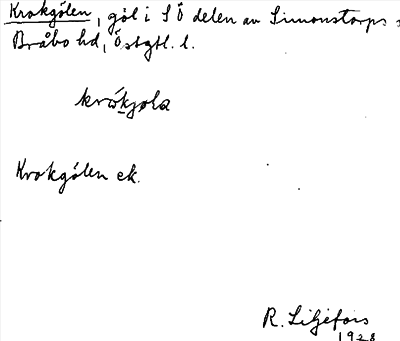 Krokgölen, göl i S Ö delen av Simonstorps s
Bråbo hd, Östgtl. l.
krókjola
Krokgölen ek.
R. Liljefors
1928